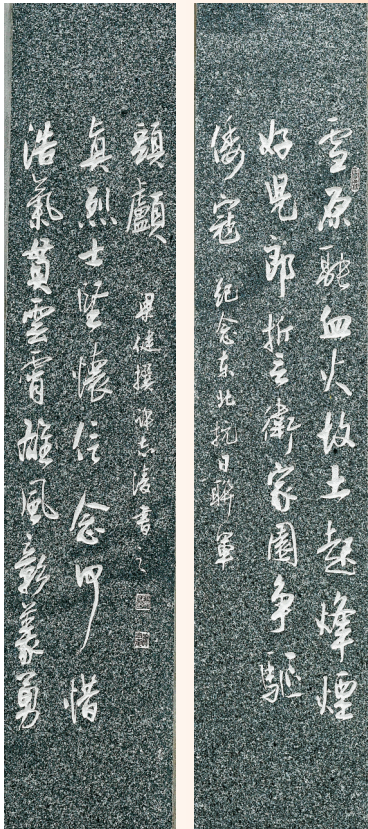 雪原融血火故土起烽煙
好兒郎誓衛家園爭驅
倭寇 纪念东北抗日聯軍
浩氣貫雲霄雄風彰義勇
真烈士堅懷信念何惜
頭顱 健撰 志凌書